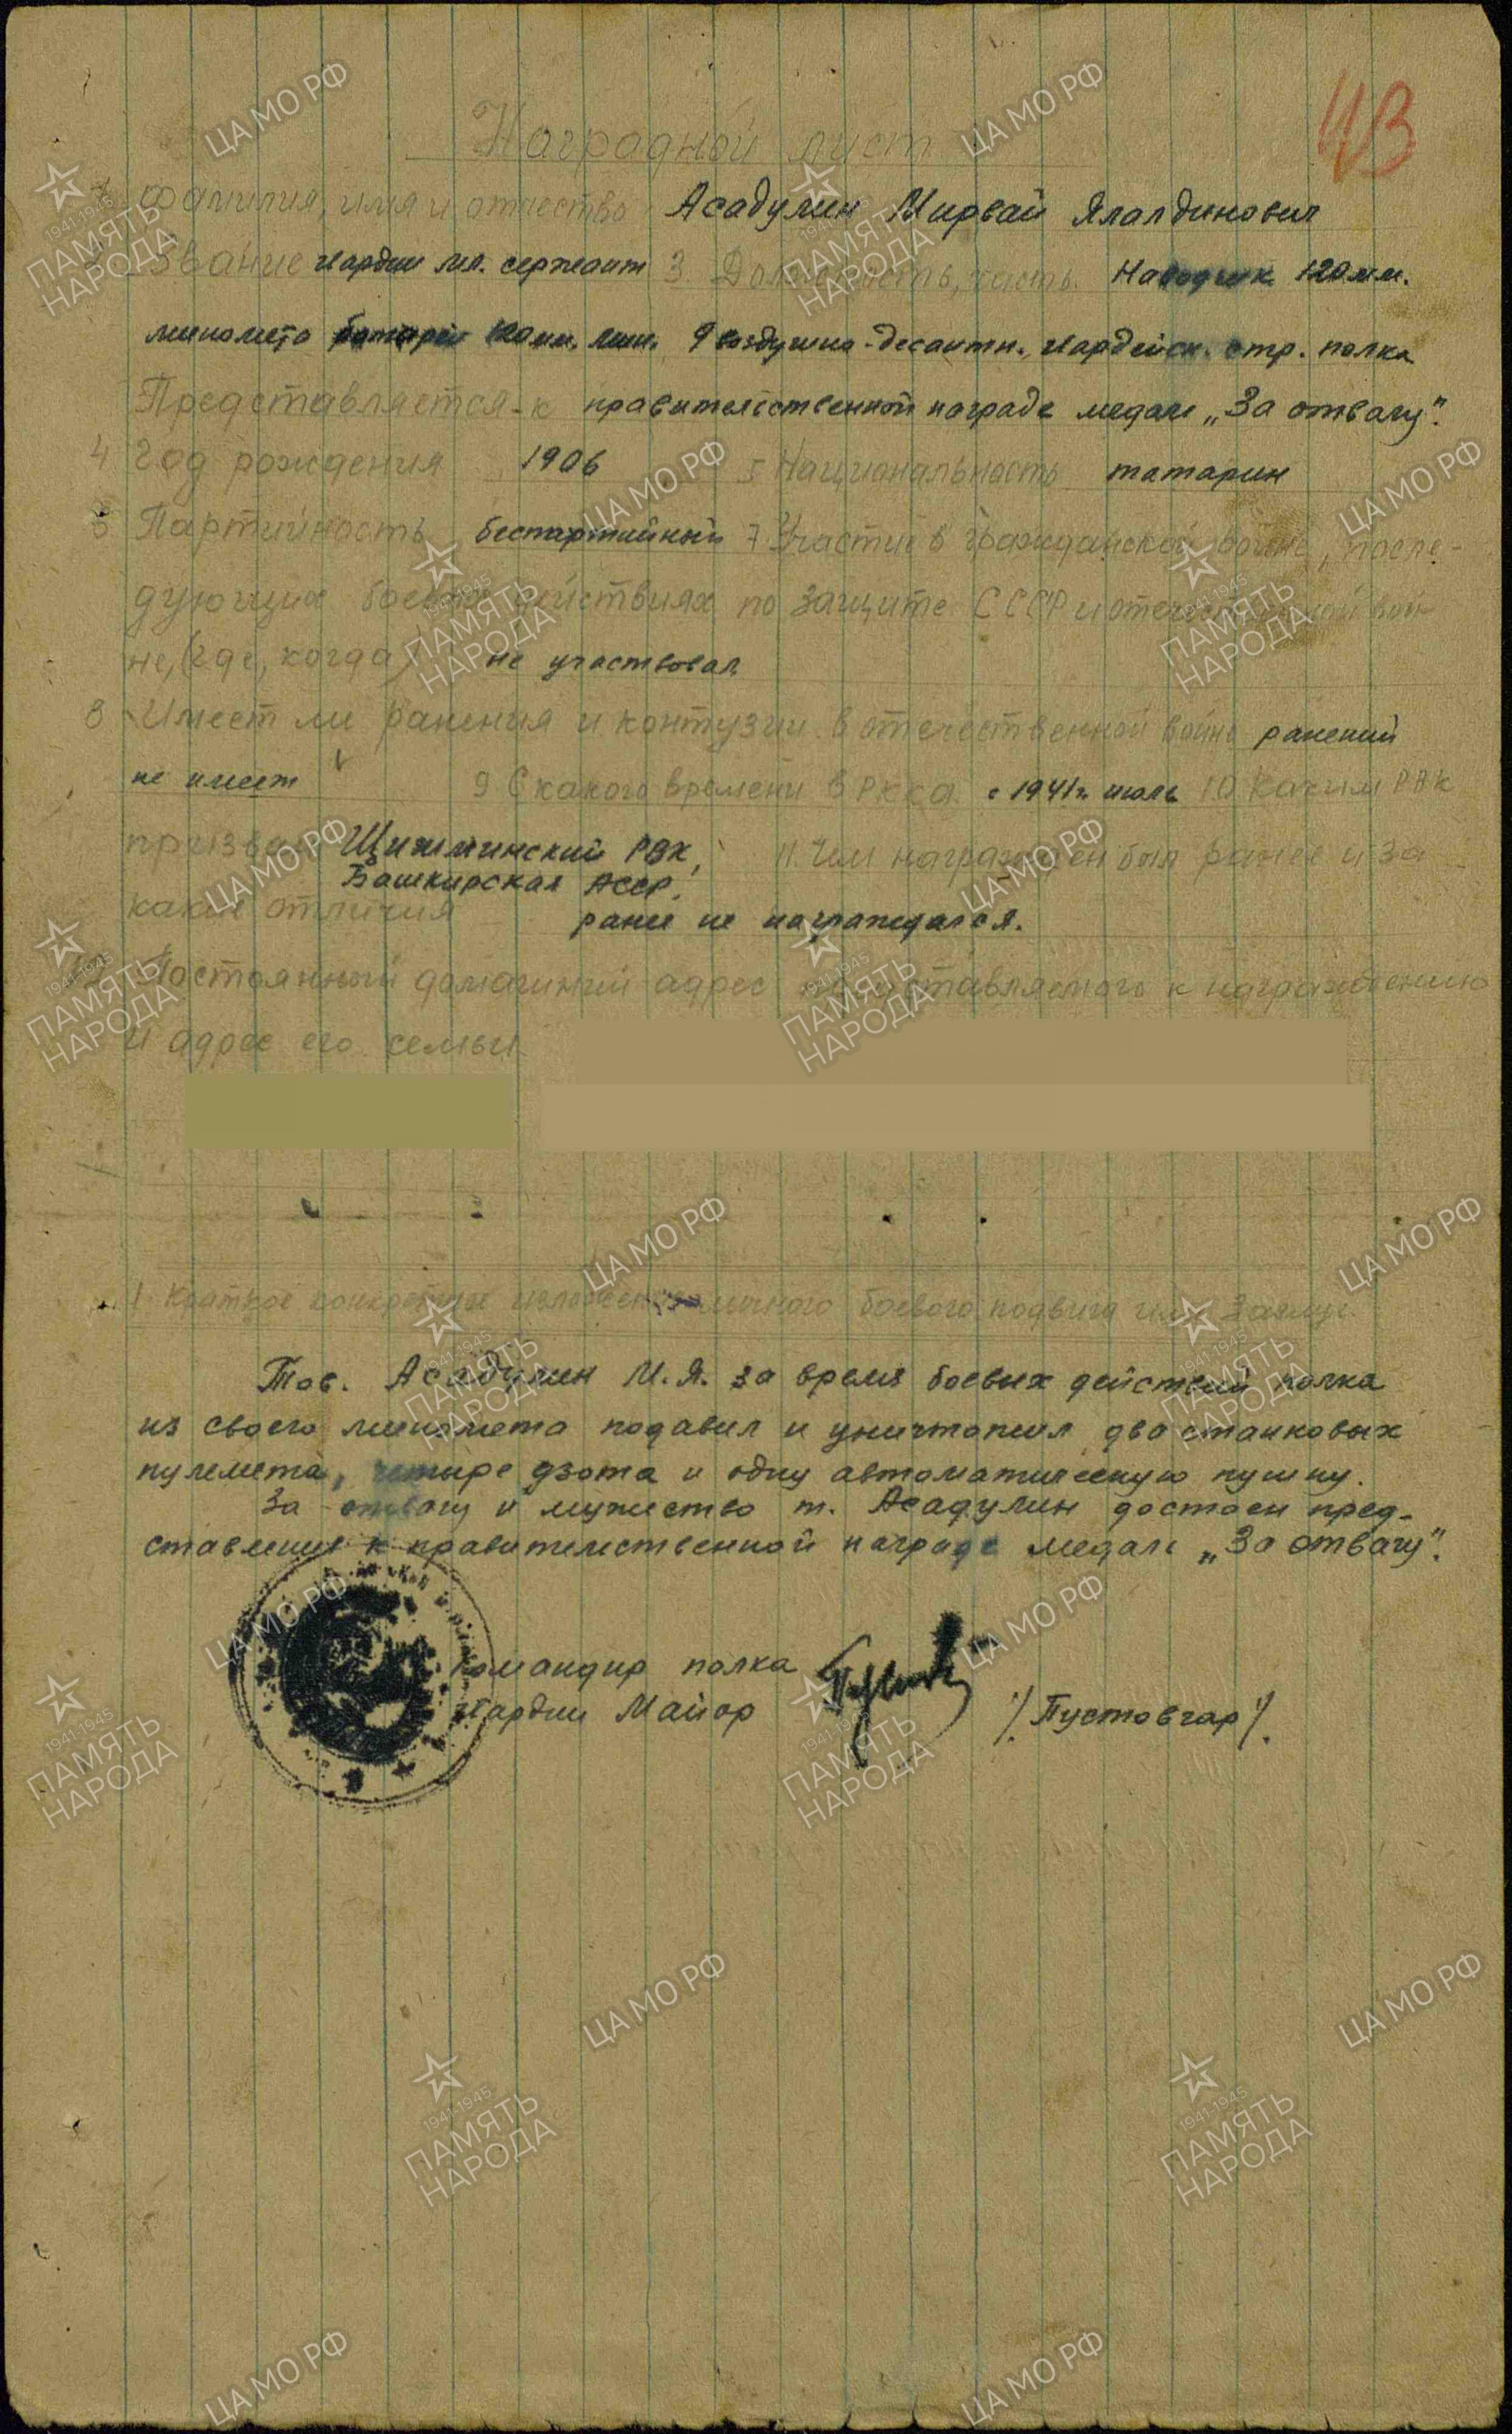 43
Наградной лист
1 Фамилия, имя и отчество Асадулин Мирвай Ялалдинович
2 Звание гвардии мл. сержант 3 Должность, часть. Наводчик 120 мм.
миномета батареи 120 мм. мин. 9 воздушно-десантн. гвардейск. стр. полка
Представляется к правительственной награде медали „За отвагу".
4 Год рождения 1906 5 Национальность татарин
6 Партийность беспартийный 7 Участие в гражданской войне, после-
дующих боевых действиях по защите СССР и отечественной вой-
не, (где, когда) не участвовал
8 Имеет ли ранения и контузии в отечественной войне ранений
не имеет 9 С какого времени в РККА. с 1941 г. июль 10 Каким РВК
призван Шижминский РВК, 11. Чем награжден был ранее и за
Башкирская АССР.
какие отличия ранее не награждался.
12 Постоянный домашний адрес представляемого к награждению
и адрес его семьи
1 Краткое конкретное изложение личного боевого подвига или заслуг.
Тов. Асадулин М.Я. за время боевых действий полка
из своего миномета подавил и уничтожил два станковых
пулемета, четыре дзота и одну автоматическую пушку.
За отвагу и мужество т. Асадулин достоен пред-
ставления к правительственной награде медали „За отвагу".
Командир полка
Гвардии Майор /Пустовгар/.
ЦА МО РФ
1941-1945
ПАМЯТЬ
НАРОДА